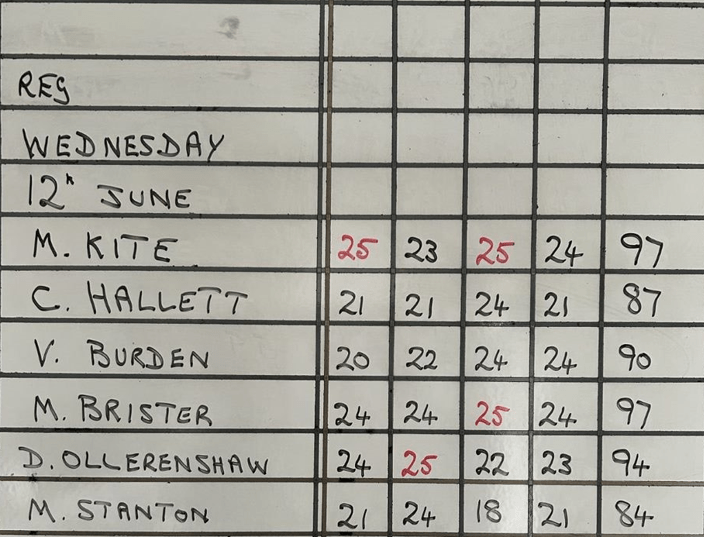 REG
WEDNESDAY
12th JUNE
M. KITE 25 23 25 24 97
C. HALLETT 21 21 24 21 87
V. BURDEN 20 22 24 24 90
M. BRISTER 24 24 25 24 97
D. OLLERENSHAW 24 25 22 23 94
M. STANTON 21 24 18 21 84